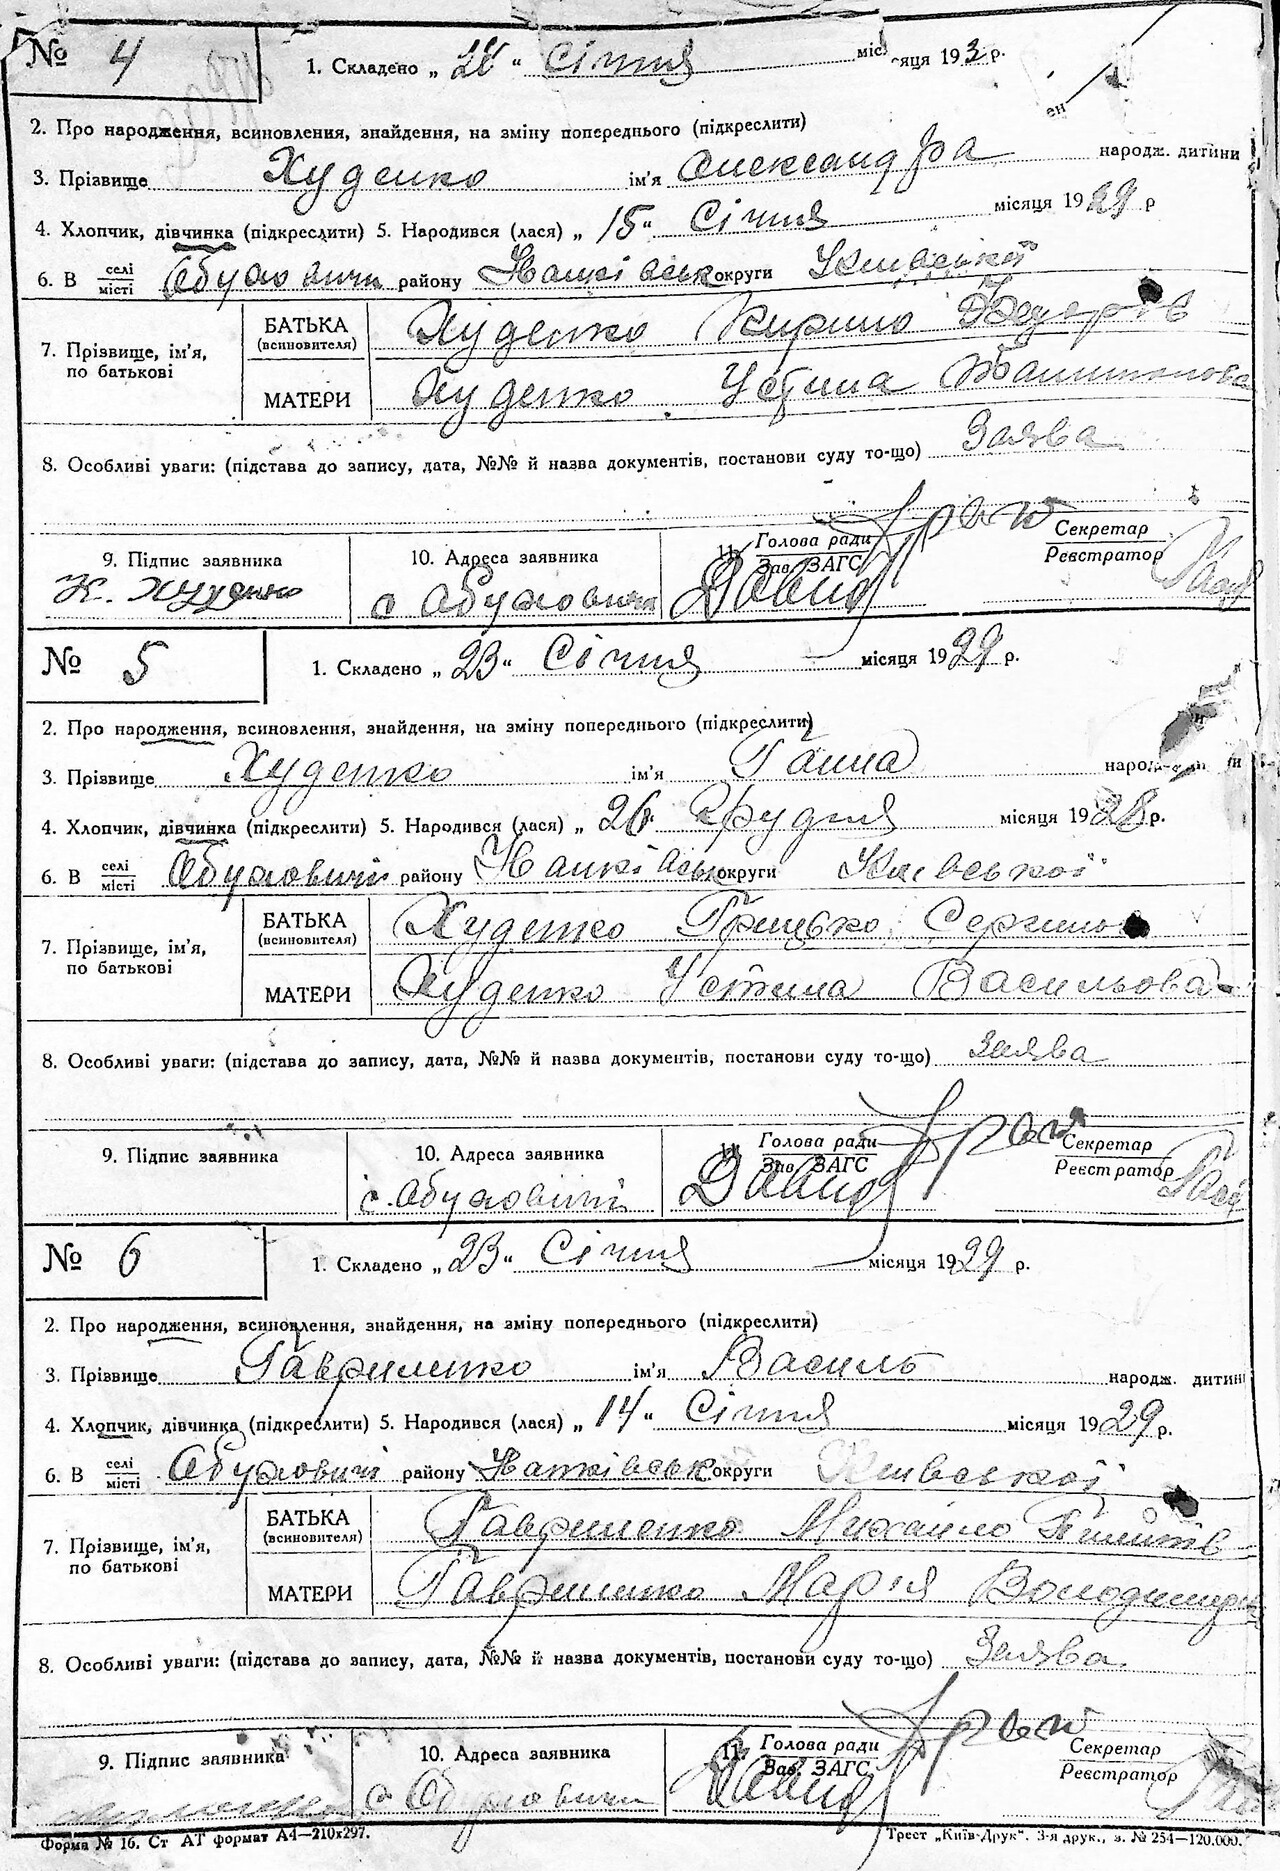 № 4 1. Складено „ " Січня місяця 193 р.
2. Про народження, всиновлення, знайдення, на зміну попереднього (підкреслити)
3. Прізвище Худенко ім'я Олександра народж. дитини
4. Хлопчик, дівчинка (підкреслити) 5. Народився (лася) „ 15 " Січня місяця 1929 р
6. В селі/місті Обуховичи району округи Київської
7. Прізвище, ім'я, по батькові
БАТЬКА (всиновителя) Худенко Кирило Федорів
МАТЕРИ Худенко Устина
8. Особливі уваги: (підстава до запису, дата, №№ й назва документів, постанови суду то-що) Заява
9. Підпис заявника 10. Адреса заявника 11. Голова ради Секретар
Зав. ЗАГС Реєстратор
К. Худенко с Обуховичи
№ 5 1. Складено „ 23 " Січня місяця 1929 р.
2. Про народження, всиновлення, знайдення, на зміну попереднього (підкреслити)
3. Прізвище Худенко ім'я Ганна
4. Хлопчик, дівчинка (підкреслити) 5. Народився (лася) „ 26 " Грудня місяця 1928 р.
6. В селі/місті Обуховичи району округи Київської
7. Прізвище, ім'я, по батькові
БАТЬКА (всиновителя) Худенко Грицько
МАТЕРИ Худенко Устина Васильова
8. Особливі уваги: (підстава до запису, дата, №№ й назва документів, постанови суду то-що) Заява
9. Підпис заявника 10. Адреса заявника 11. Голова ради Секретар
Зав. ЗАГС Реєстратор
с. Обуховичи
№ 6 1. Складено „ 23 " Січня місяця 1929 р.
2. Про народження, всиновлення, знайдення, на зміну попереднього (підкреслити)
3. Прізвище Гавриленко ім'я Василь народж. дитини
4. Хлопчик, дівчинка (підкреслити) 5. Народився (лася) „ 14 " Січня місяця 1929 р.
6. В селі/місті Обуховичи району округи Київської
7. Прізвище, ім'я, по батькові
БАТЬКА (всиновителя) Гавриленко Михайло
МАТЕРИ Гавриленко Марія
8. Особливі уваги: (підстава до запису, дата, №№ й назва документів, постанови суду то-що) Заява
9. Підпис заявника 10. Адреса заявника 11. Голова ради Секретар
Зав. ЗАГС Реєстратор
с Обуховичи
Форма № 16. Ст АТ формат А4—210×297. Трест „Київ-Друк". 3-я друк., з. № 254—120.000.